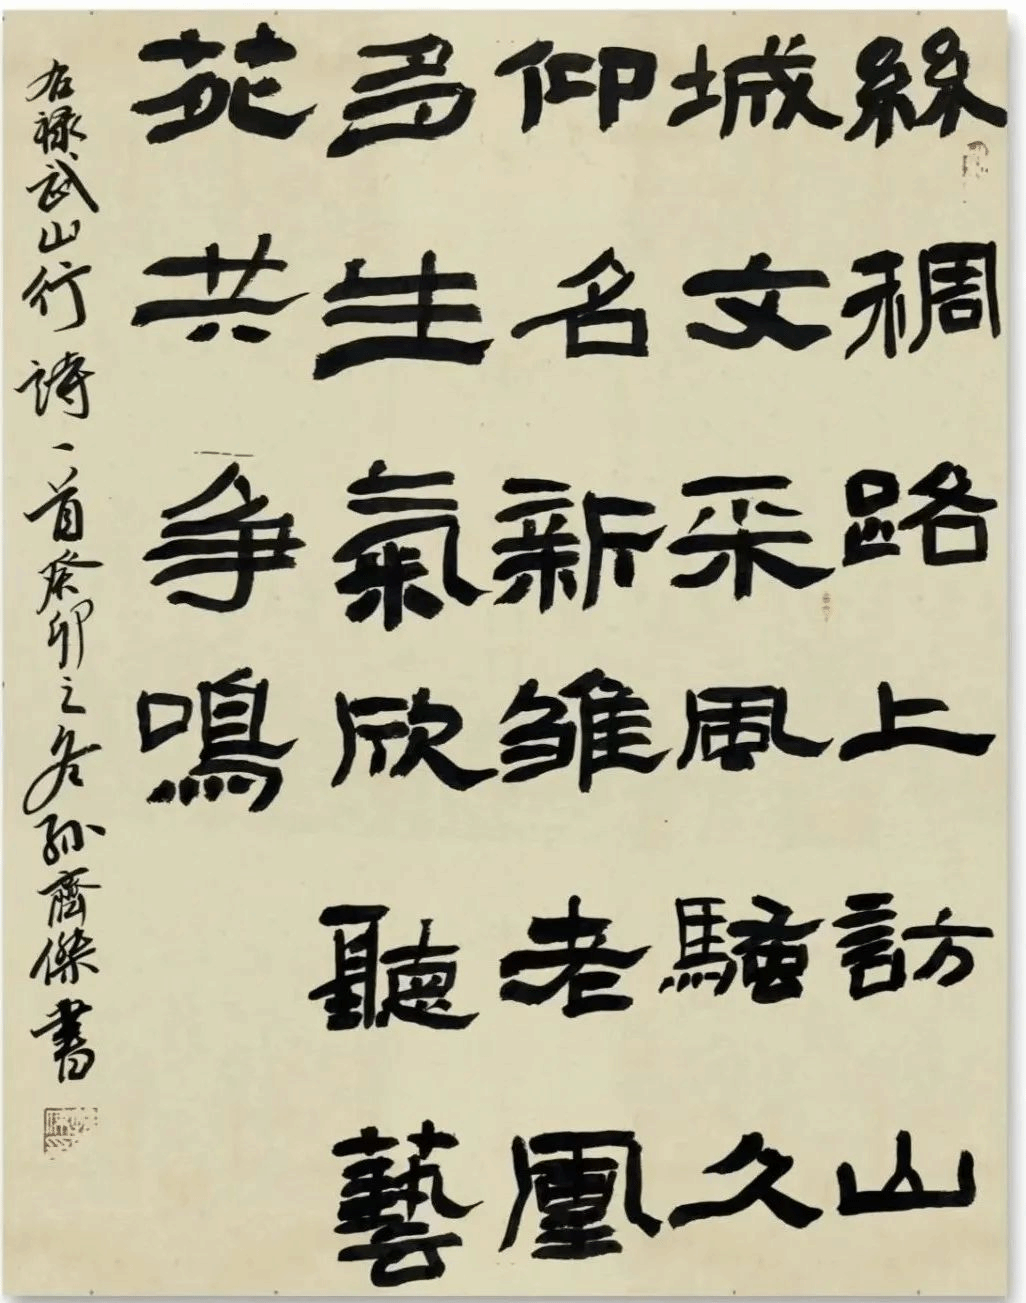 絲稠路上訪山
城文采風騷久
仰名新雏老凰
多生氣欣聽藝
苑共争鳴
右禄武山行詩一首癸卯之冬孙齊傑書